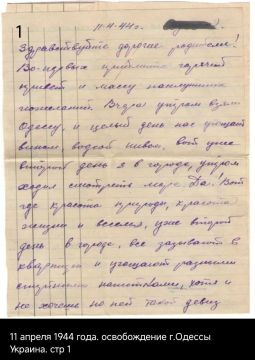 1
11-4-44г.
Здравствуйте дорогие родители!
Во-первых примите горячий
привет и массу наилучших
пожеланий. Вчера утром взяли
Одессу, и целый день нас угощают
вином, водкой пивом, вот уже
второй день я в городе, утром
ходил смотреть море. Да! Вот
где красота природы, красота
жизни и веселья, уже второй
день в городе, все зазывают в
квартиры и угощают разными
спиртными напитками, хотя и
не хочешь но пей такой девиз
11 апреля 1944 года. освобождение г.Одессы
Украина. стр 1